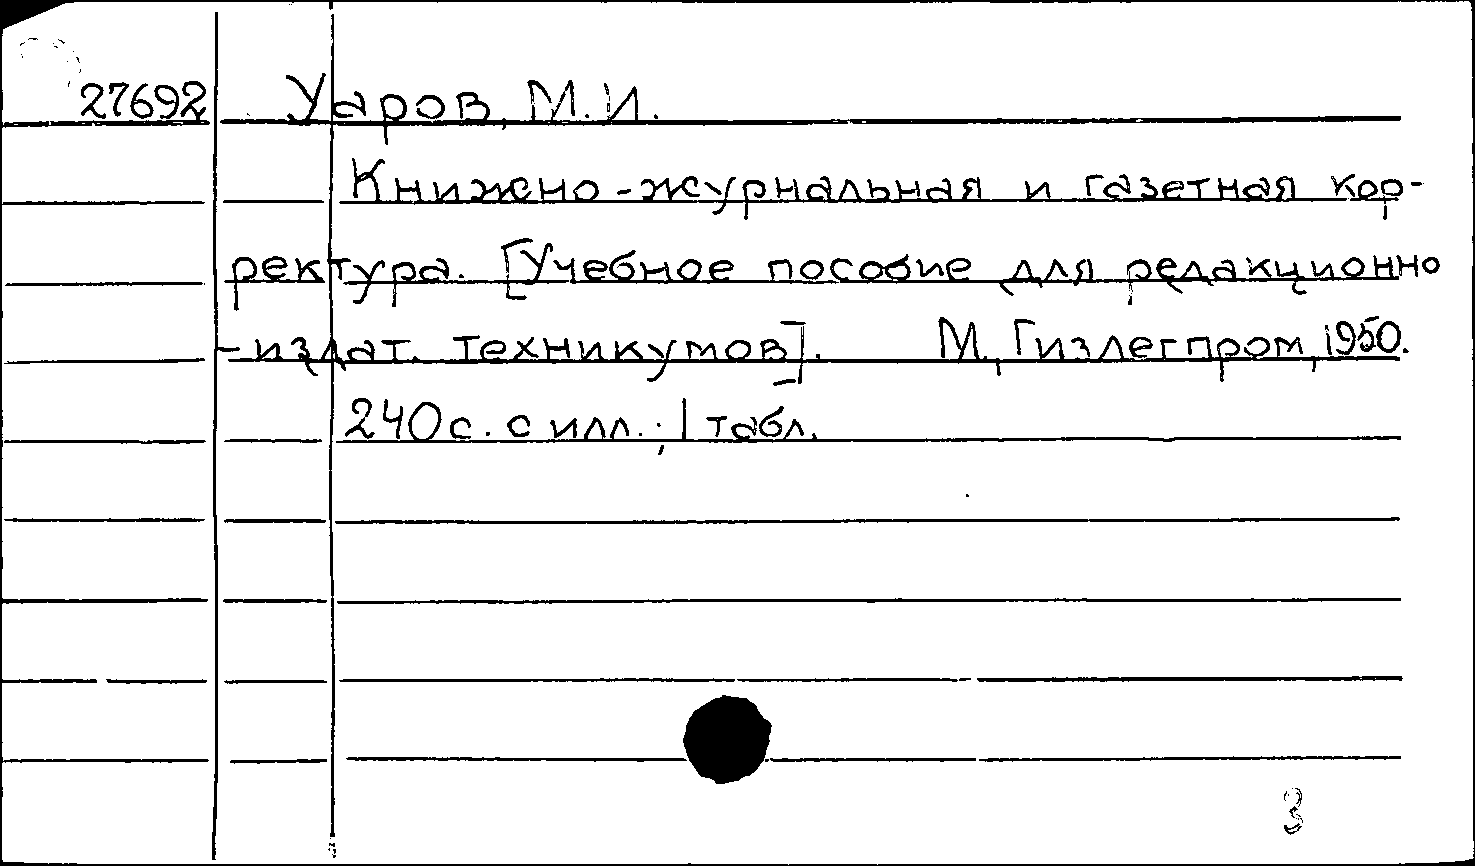 27692 Уаров, М.И.
Книжно-журнальная и газетная кор-
ректура. [Учебное пособие для редакционно
-издат. техникумов]. М., Гизлегпром, 1950.
240 с. с илл.; 1 табл.
3